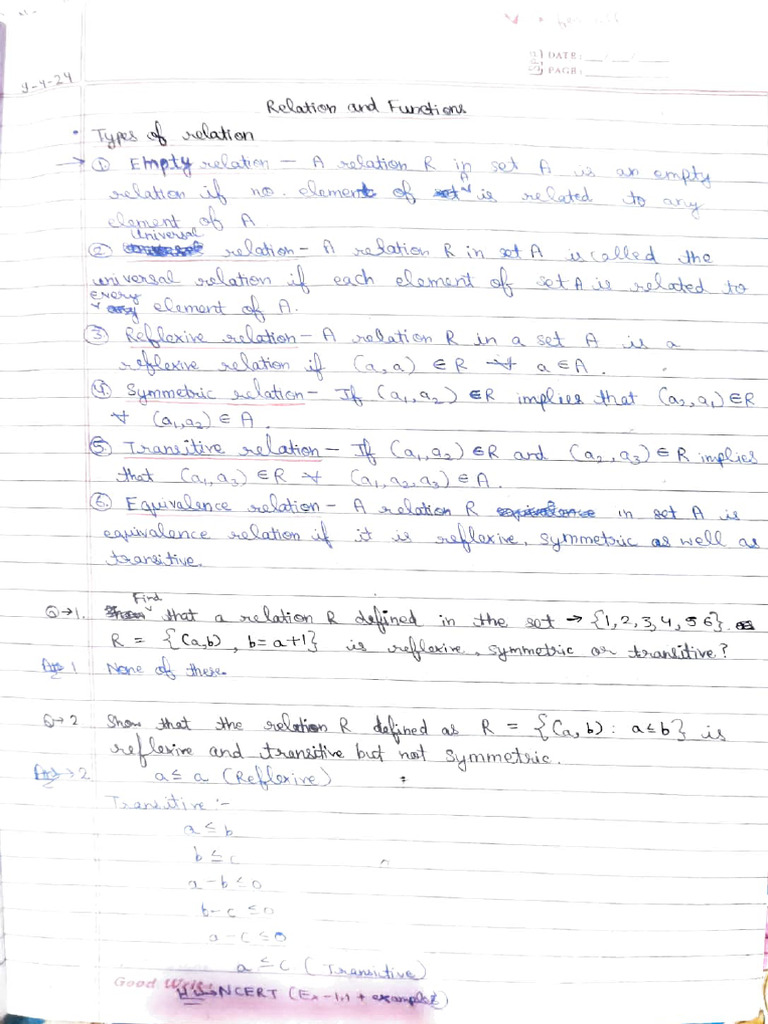 DATE: __/__/__
PAGE: ______
9-4-24
Relation and Functions
• Types of relation
→ ① Empty relation – A relation R in set A is an empty
relation if no. element of A is related to any
element of A
② Universal relation – A relation R in set A is called the
universal relation if each element of set A is related to
every element of A.
③ Reflexive relation – A relation R in a set A is a
reflexive relation if (a,a) ∈ R ∀ a ∈ A.
④ Symmetric relation – If (a₁,a₂) ∈ R implies that (a₂,a₁) ∈ R
∀ (a₁,a₂) ∈ A.
⑤ Transitive relation – If (a₁,a₂) ∈ R and (a₂,a₃) ∈ R implies
that (a₁,a₃) ∈ R ∀ (a₁,a₂,a₃) ∈ A.
⑥ Equivalence relation – A relation R in set A is
equivalence relation if it is reflexive, symmetric as well as
transitive.
Q→1. Find that a relation R defined in the set → {1,2,3,4,5 6}. as
R = {(a,b), b=a+1} is reflexive, symmetric or transitive?
Ans 1 None of these.
Q→2 Show that the relation R defined as R = {(a,b): a≤b} is
reflexive and transitive but not symmetric.
Ans→2. a≤a (Reflexive)
Transitive :-
a≤b
b≤c
a-b≤0
b-c≤0
a-c≤0
a≤c (Transitive)
Good
NCERT (Ex-1.1 + examples)